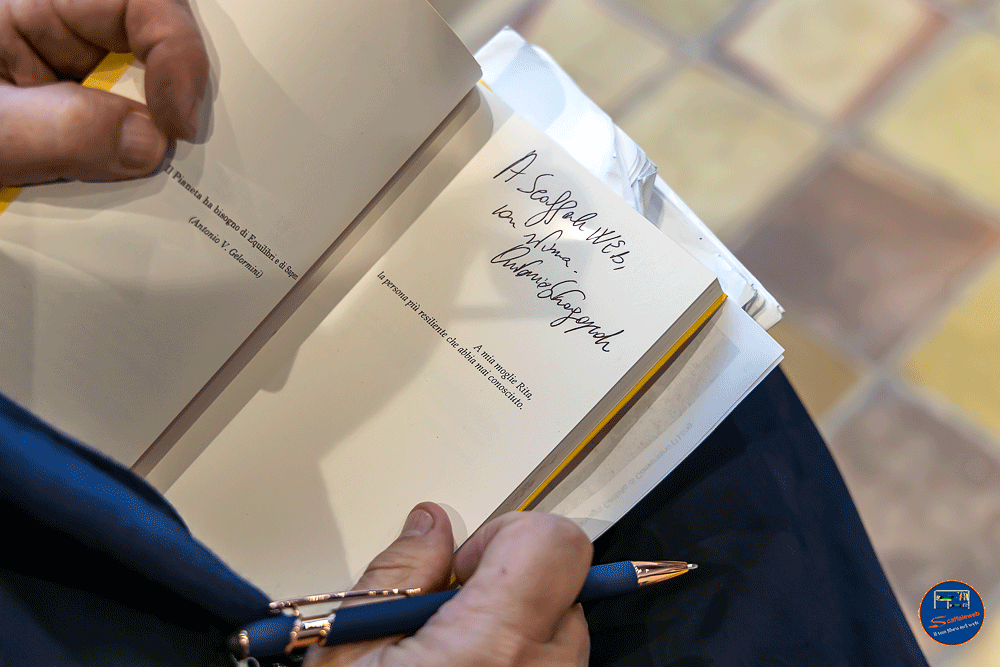 Il Pianeta ha bisogno di Equilibri e di
(Antonio V. Gelormini)
A Scaffale WEB,
con stima.
A mia moglie Rita,
la persona più resiliente che abbia mai conosciuto.
Scaffaleweb
il tuo libro nel web